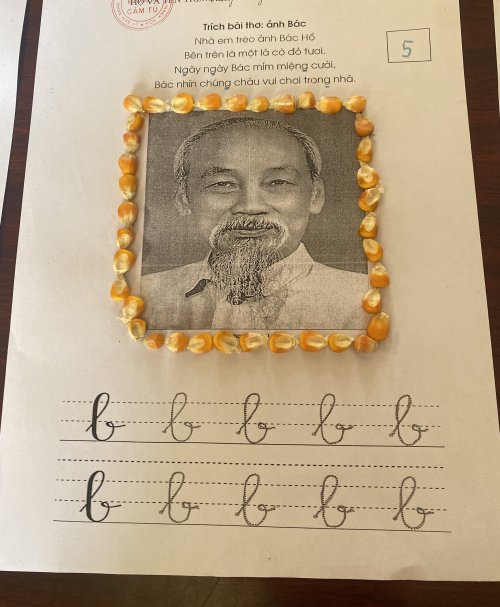 HỌ VÀ TÊN
CẨM TÚ
Trích bài thơ: ảnh Bác
Nhà em treo ảnh Bác Hồ
Bên trên là một lá cờ đỏ tươi.
Ngày ngày Bác mỉm miệng cười,
Bác nhìn chúng cháu vui chơi trong nhà.
5
b b b b b
b b b b b